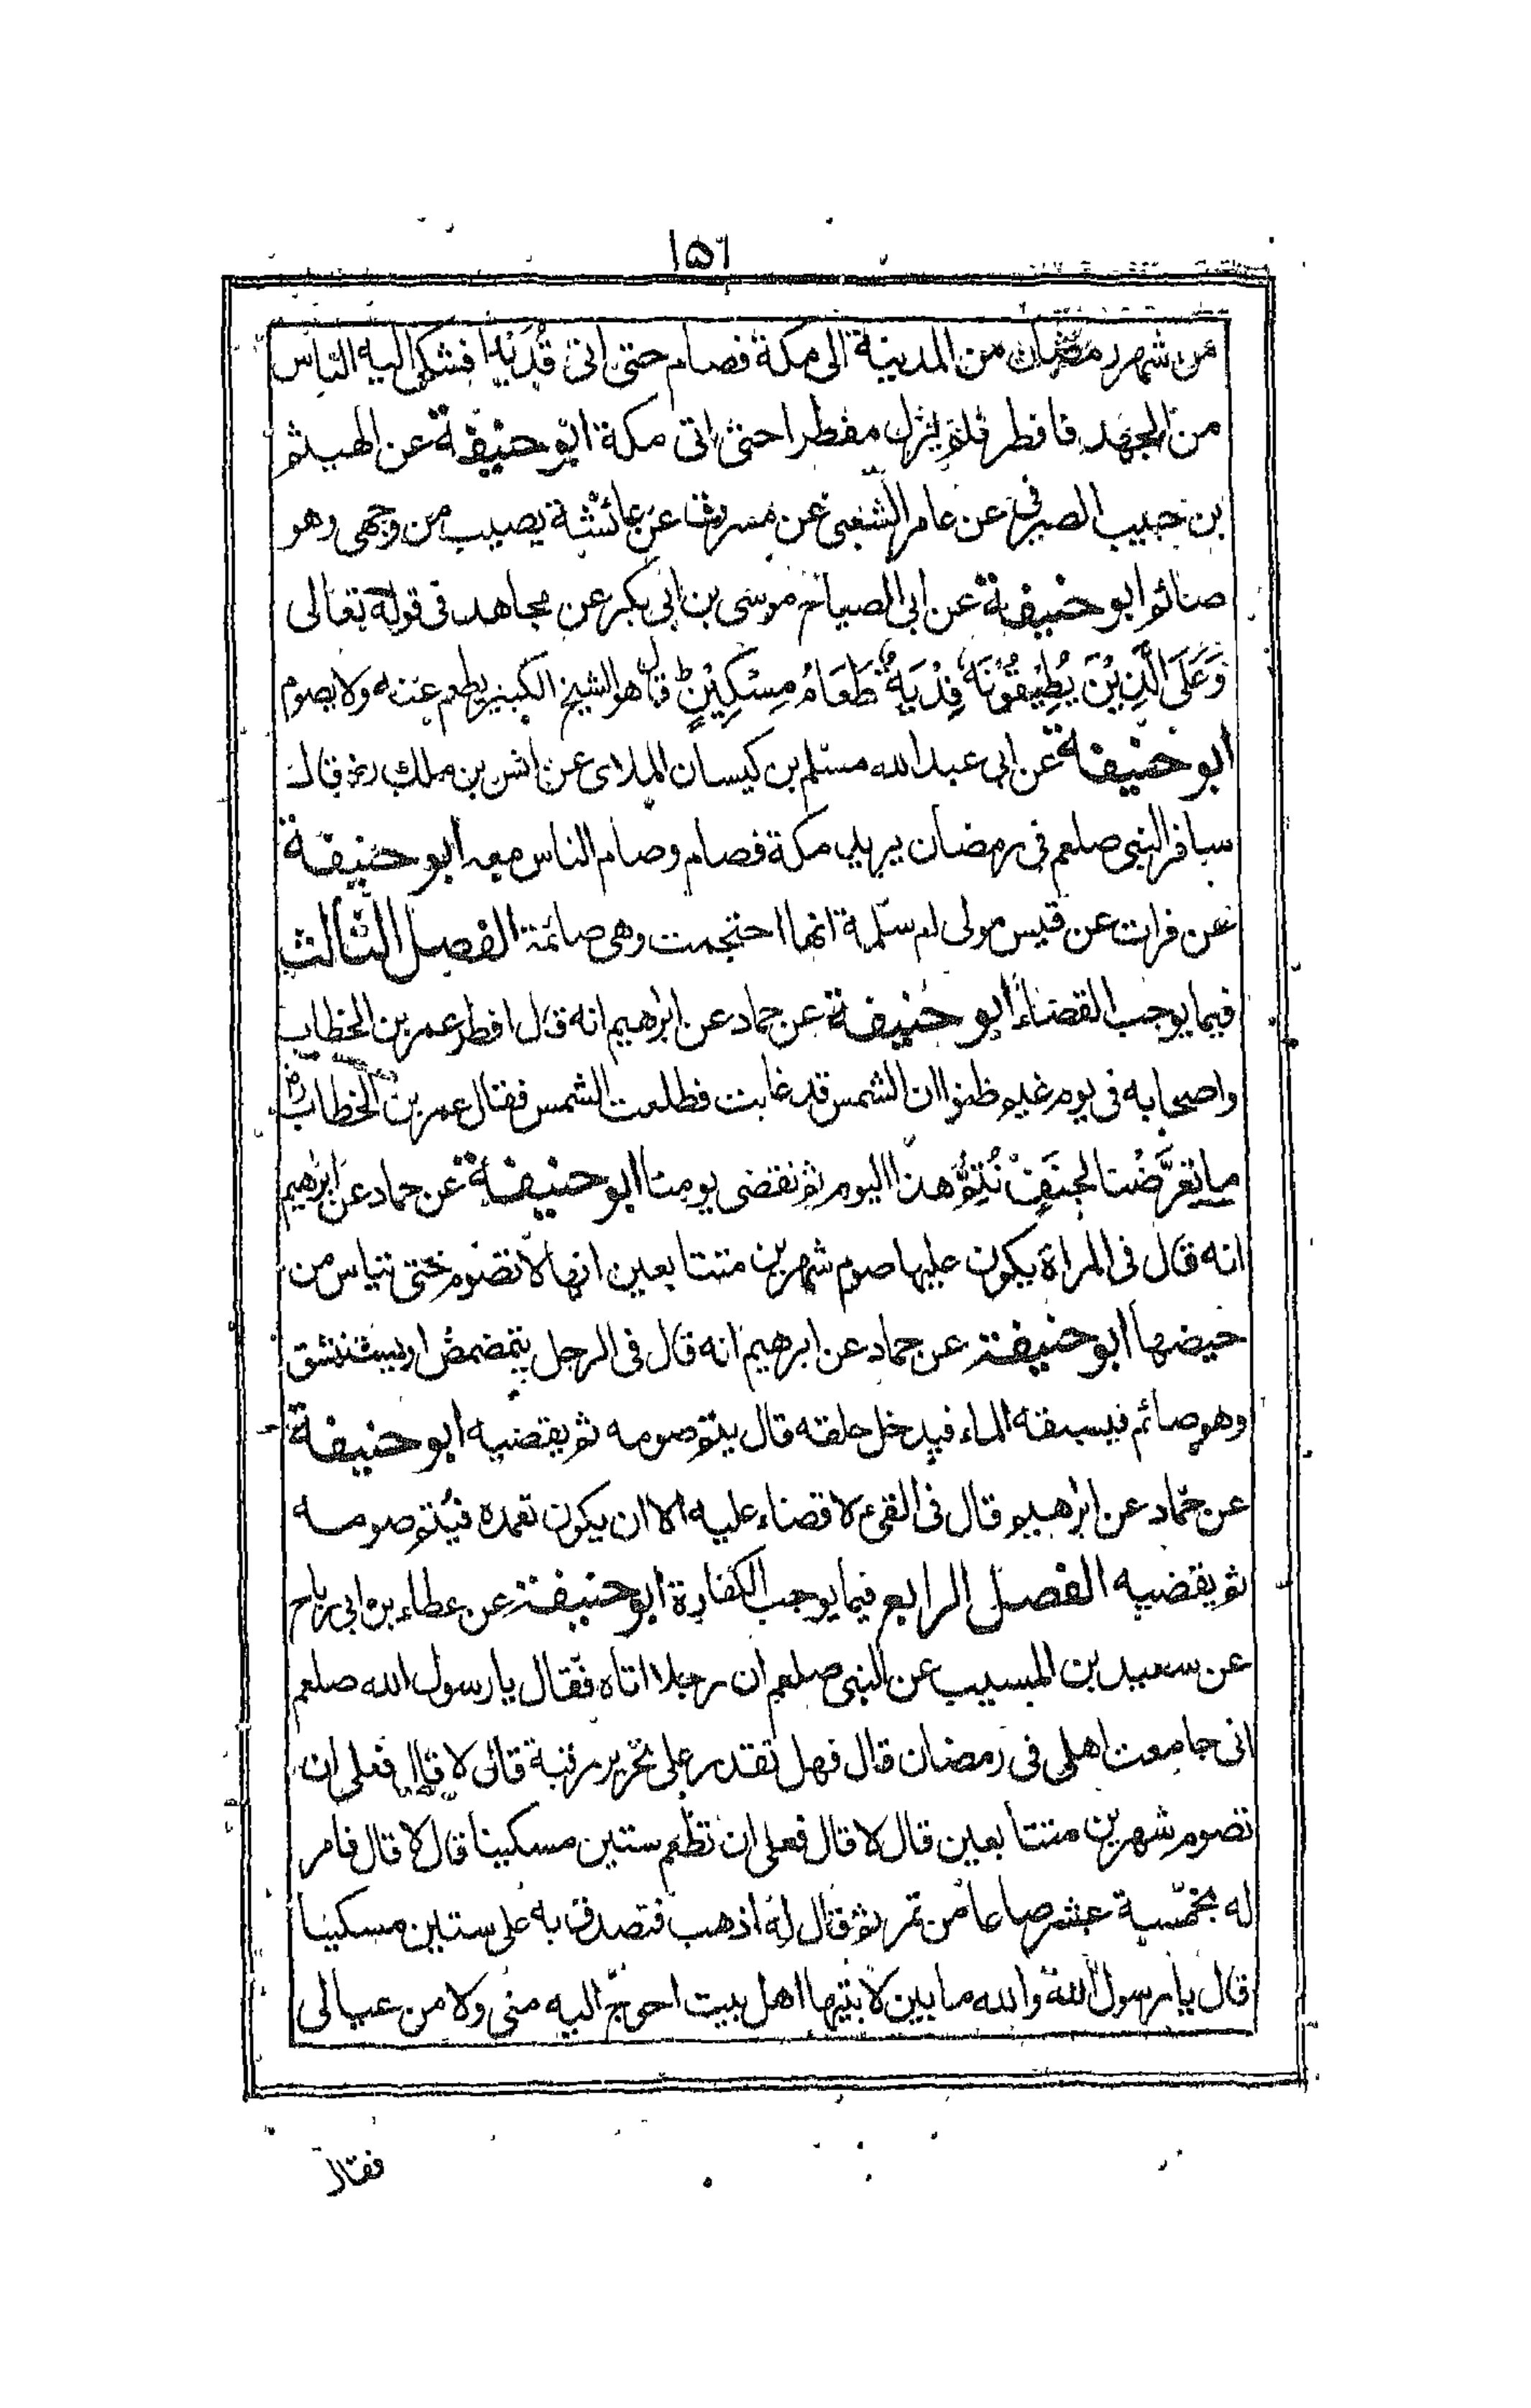 ١٥٦
من شهر رمضان من المدينة الى مكة فصام حتى اتى قُدَيْدا فشكى اليه الناس
من الجهد فافطر فلم يزل مفطرا حتى اتى مكة ابو حنيفة عن الهيثم
بن حبيب الصيرفى عن عامر الشعبى عن مسروق عن عائشة يصيب من وجهى وهو
صائم ابو حنيفة عن ابى الصباح موسى بن ابى بكر عن مجاهد فى قوله تعالى
وَعَلَى الَّذِيْنَ يُطِيْقُوْنَهٗ فِدْيَةٌ طَعَامُ مِسْكِيْنٍ قال هو الشيخ الكبير يطعم عنه ولا يصوم
ابو حنيفة عن ابى عبد الله مسلم بن كيسان الملاى عن انس بن ملك رضـ قال
سافر النبى صلعم فى رمضان يريد مكة فصام وصام الناس معه ابو حنيفة
عن فرات عن قيس مولى ام سلمة انها احتجمت وهى صائمة الفصل الثالث
فيما يوجب القضاء ابو حنيفة عن حماد عن ابرهيم انه قال افطر عمر بن الخطاب
واصحابه فى يوم غيم ظنوا ان الشمس قد غابت فطلعت الشمس فقال عمر بن الخطاب رضـ
ما تعرَّضْنا لجنَفٍ نُتِمُّ هذا اليوم ثم نقضى يومنا ابو حنيفة عن حماد عن ابرهيم
انه قال فى المراة يكون عليها صوم شهرين متتابعين انها لا تصوم حتى تياس من
حيضها ابو حنيفة عن حماد عن ابرهيم انه قال فى الرجل يتمضمض او يستنشق
وهو صائم فيسبقه الماء فيدخل حلقه قال يتم صومه ثم يقضيه ابو حنيفة
عن حماد عن ابرهيم قال فى القئ لا قضاء عليه الا ان يكون تعمده فيُتم صومه
ثم يقضيه الفصل الرابع فيما يوجب الكفارة ابو حنيفة عن عطاء بن ابى رباح
عن سعيد بن المسيب عن النبى صلعم ان رجلا اتاه فقال يا رسول الله صلعم
انى جامعت اهلى فى رمضان قال فهل تقدر على تحرير رقبة قال لا قال فعلى ان
تصوم شهرين متتابعين قال لا قال فعلى ان تطعم ستين مسكينا قال لا قال فامر
له بخمسة عشر صاعا من تمر ثم قال له اذهب فتصدق به على ستين مسكينا
قال يا رسول الله والله ما بين لابتيها اهل بيت احوج اليه منى ولا من عيالى
فقال